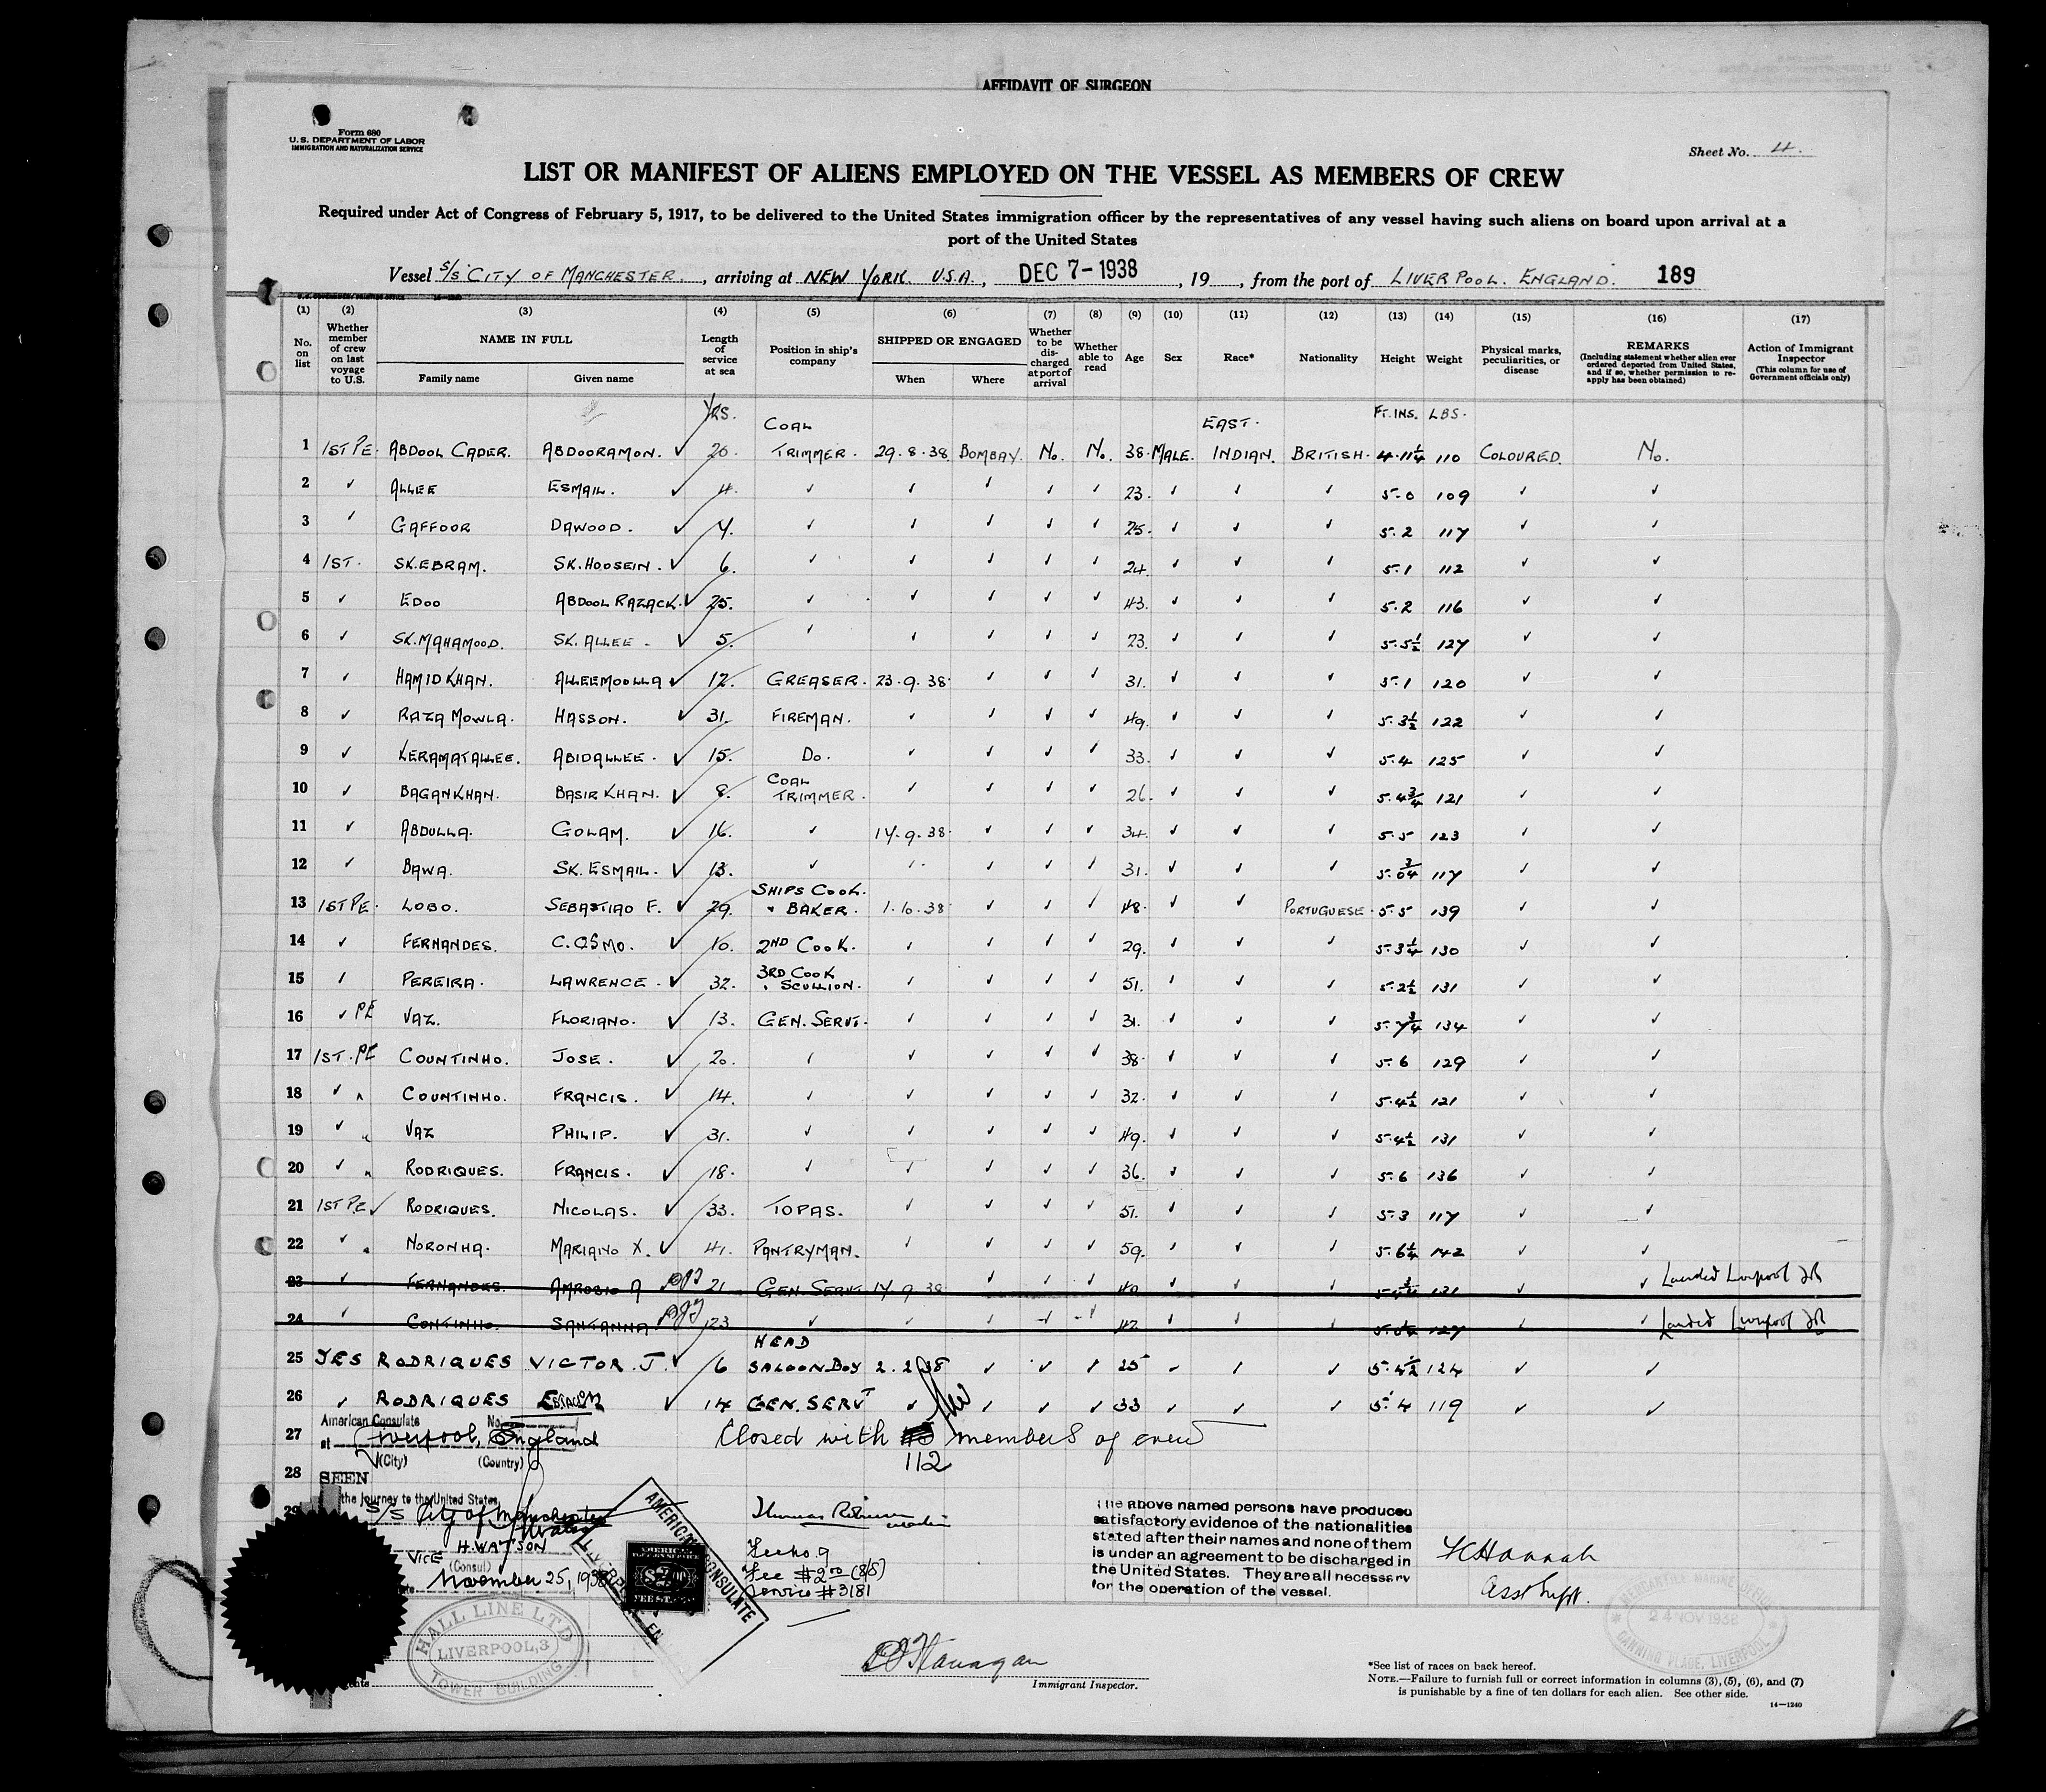 AFFIDAVIT OF SURGEON
Form 680
U.S. DEPARTMENT OF LABOR
IMMIGRATION AND NATURALIZATION SERVICE
Sheet No. 4.
LIST OR MANIFEST OF ALIENS EMPLOYED ON THE VESSEL AS MEMBERS OF CREW
Required under Act of Congress of February 5, 1917, to be delivered to the United States immigration officer by the representatives of any vessel having such aliens on board upon arrival at a
port of the United States
Vessel S/S "CITY OF MANCHESTER., arriving at NEW YORK. U.S.A., DEC 7-1938, 19 , from the port of LIVERPOOL. ENGLAND. 189
(1) (2) (3) (4) (5) (6) (7) (8) (9) (10) (11) (12) (13) (14) (15) (16) (17)
No. on list
Whether member of crew on last voyage to U.S.
NAME IN FULL
Family name Given name
Length of service at sea
Position in ship's company
SHIPPED OR ENGAGED
When Where
Whether to be discharged at port of arrival
Whether able to read
Age
Sex
Race*
Nationality
Height
Weight
Physical marks, peculiarities, or disease
REMARKS
(Including statement whether alien ever ordered deported from United States, and if so, whether permission to re-apply has been obtained)
Action of Immigrant Inspector
(This column for use of Government officials only)
YRS. COAL EAST. FT. INS. LBS.
1 1ST PE. ABDOOL CADER. ABDOORAMON. ✓ 20. TRIMMER. 29.8.38 BOMBAY. No. No. 38. MALE. INDIAN. BRITISH. 4.11¼ 110 COLOURED. No.
2 ✓ ALLEE ESMAIL. ✓ 4. ✓ ✓ ✓ ✓ ✓ 23. ✓ ✓ ✓ 5.0 109 ✓ ✓
3 ✓ GAFFOOR DAWOOD. ✓ 4. ✓ ✓ ✓ ✓ ✓ 25. ✓ ✓ ✓ 5.2 117 ✓ ✓
4 1ST. SK. EBRAM. SK. HOOSEIN. ✓ 6. ✓ ✓ ✓ ✓ ✓ 24. ✓ ✓ ✓ 5.1 112 ✓ ✓
5 ✓ EDOO ABDOOL RAZACK. ✓ 25. ✓ ✓ ✓ ✓ ✓ 43. ✓ ✓ ✓ 5.2 116 ✓ ✓
6 ✓ SK. MAHAMOOD. SK. ALLEE. ✓ 5. ✓ ✓ ✓ ✓ ✓ 23. ✓ ✓ ✓ 5.5½ 127 ✓ ✓
7 ✓ HAMID KHAN. ALLEEMOOLLA ✓ 12. GREASER. 23.9.38. ✓ ✓ ✓ 31. ✓ ✓ ✓ 5.1 120 ✓ ✓
8 ✓ RAZA MOWLA. HASSON. ✓ 31. FIREMAN. ✓ ✓ ✓ ✓ 49. ✓ ✓ ✓ 5.3½ 122 ✓ ✓
9 ✓ KERAMATALLEE. ABIDALLEE. ✓ 15. Do. ✓ ✓ ✓ ✓ 33. ✓ ✓ ✓ 5.4 125 ✓ ✓
10 ✓ BAGANKHAN. BASIR KHAN. ✓ 8. COAL TRIMMER. ✓ ✓ ✓ ✓ 26. ✓ ✓ ✓ 5.4¾ 121 ✓ ✓
11 ✓ ABDULLA. GOLAM. ✓ 16. ✓ 14.9.38. ✓ ✓ ✓ 34. ✓ ✓ ✓ 5.5 123 ✓ ✓
12 ✓ BAWA. SK. ESMAIL. ✓ 13. ✓ ✓ ✓ ✓ ✓ 31. ✓ ✓ ✓ 5.0¾ 117 ✓ ✓
13 1ST PE. LOBO. SEBASTIAO F. ✓ 29. SHIPS COOK. & BAKER. 1.10.38 ✓ ✓ ✓ 48. ✓ ✓ PORTUGUESE. 5.5 139 ✓ ✓
14 ✓ FERNANDES. C. OSMO. ✓ 10. 2ND COOK. ✓ ✓ ✓ ✓ 29. ✓ ✓ ✓ 5.3¼ 130 ✓ ✓
15 ✓ PEREIRA. LAWRENCE. ✓ 32. 3RD COOK & SCULLION. ✓ ✓ ✓ ✓ 51. ✓ ✓ ✓ 5.2½ 131 ✓ ✓
16 ✓ PE VAZ. FLORIANO. ✓ 13. GEN. SERVT. ✓ ✓ ✓ ✓ 31. ✓ ✓ ✓ 5.7¾ 134 ✓ ✓
17 1ST. PE COUNTINHO. JOSE. ✓ 20. ✓ ✓ ✓ ✓ ✓ 38. ✓ ✓ ✓ 5.6 129 ✓ ✓
18 ✓ " COUNTINHO. FRANCIS. ✓ 14. ✓ ✓ ✓ ✓ ✓ 32. ✓ ✓ ✓ 5.4½ 121 ✓ ✓
19 ✓ " VAZ PHILIP. ✓ 31. ✓ ✓ ✓ ✓ ✓ 49. ✓ ✓ ✓ 5.4½ 131 ✓ ✓
20 ✓ " RODRIQUES. FRANCIS. ✓ 18. ✓ ✓ ✓ ✓ ✓ 36. ✓ ✓ ✓ 5.6 136 ✓ ✓
21 1ST PE ✓ RODRIQUES. NICOLAS. ✓ 33. TOPAS. ✓ ✓ ✓ ✓ 51. ✓ ✓ ✓ 5.3 117 ✓ ✓
22 ✓ " NORONHA. MARIANO X. ✓ 41. PANTRYMAN. ✓ ✓ ✓ ✓ 59. ✓ ✓ ✓ 5.6¼ 142 ✓ ✓
23 ✓ FERNANDES. AMROSIO A 21 GEN. SERVT. 14.9.38 ✓ ✓ ✓ 49. ✓ ✓ ✓ 131 ✓ ✓ Landed Liverpool
24 ✓ CONTINHO. SANTANNA 23. ✓ ✓ ✓ ✓ ✓ 42. ✓ ✓ ✓ 127 ✓ ✓ Landed Liverpool
25 YES RODRIQUES VICTOR. J. ✓ 6 HEAD SALOON BOY 2.2.38 ✓ ✓ ✓ 25 ✓ ✓ ✓ 5.4½ 124 ✓ ✓
26 ✓ RODRIQUES ✓ 14 GEN. SERVT ✓ ✓ ✓ ✓ 33 ✓ ✓ ✓ 5.4 119 ✓ ✓
27 Closed with members of crew
112
28
29
American Consulate No.
at Liverpool, England
(City) (Country)
SEEN
the Journey to the United States
S/S City of Manchester
H. WATSON
VICE (Consul)
November 25, 1938
AMERICAN CONSULATE
LIVERPOOL, EN
AMERICAN
FEE ST
Fee no. 9
Fee $2.00 (8/5)
Service #3181
The above named persons have produced
satisfactory evidence of the nationalities
stated after their names and none of them
is under an agreement to be discharged in
the United States. They are all necessary
for the operation of the vessel.
Hannah
Asst Supt.
MERCANTILE MARINE OFFICE
24 NOV 1938
CANNING PLACE, LIVERPOOL
HALL LINE LTD
LIVERPOOL, 3
TOWER BUILDING
Flanagan
Immigrant Inspector.
*See list of races on back hereof.
NOTE.—Failure to furnish full or correct information in columns (3), (5), (6), and (7)
is punishable by a fine of ten dollars for each alien. See other side.
14—1240